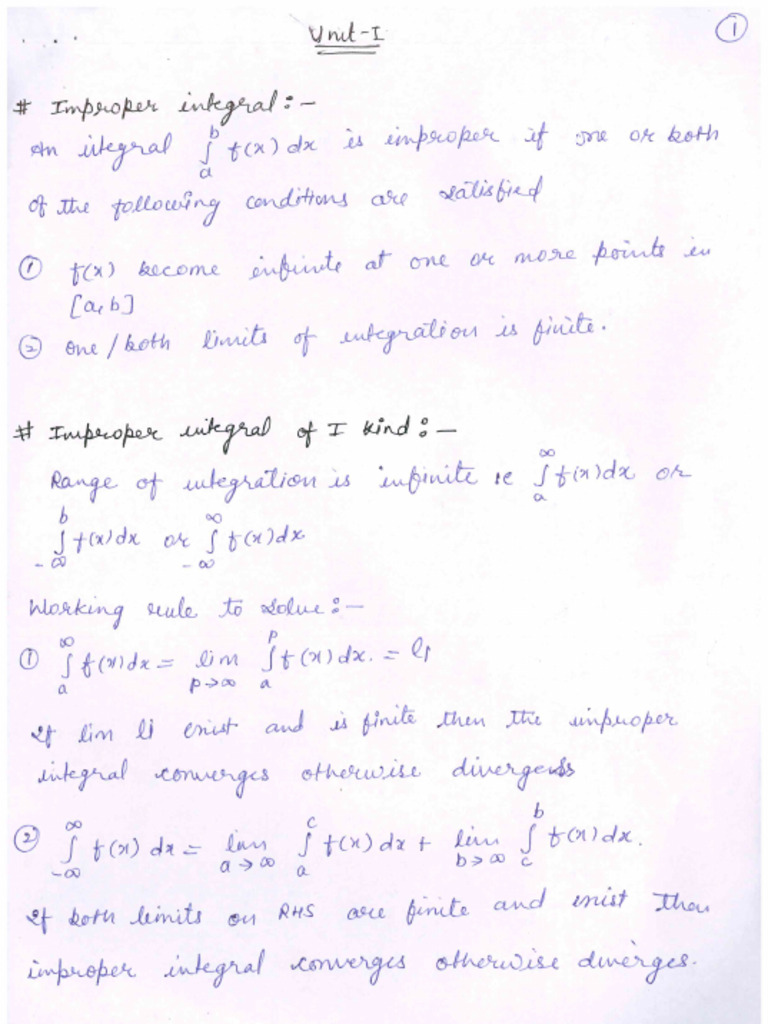 Unit-I
①
# Improper integral:-
An itegral ∫_a^b f(x) dx is improper if one or both
of the following conditions are satisfied
① f(x) become infinite at one or more points in
[a,b]
② one/both limits of integration is finite.
# Improper integral of I kind:-
Range of integration is infinite ie ∫_a^∞ f(x)dx or
∫_{-∞}^b f(x)dx or ∫_{-∞}^∞ f(x)dx
Working rule to solve:-
① ∫_a^∞ f(x)dx = lim_{p→∞} ∫_a^p f(x)dx. = l₁
If lim l₁ exist and is finite then the improper
integral converges otherwise diverges
② ∫_{-∞}^∞ f(x) dx = lim_{a→∞} ∫_a^c f(x)dx + lim_{b→∞} ∫_c^b f(x)dx.
If both limits on RHS are finite and exist then
improper integral converges otherwise diverges.